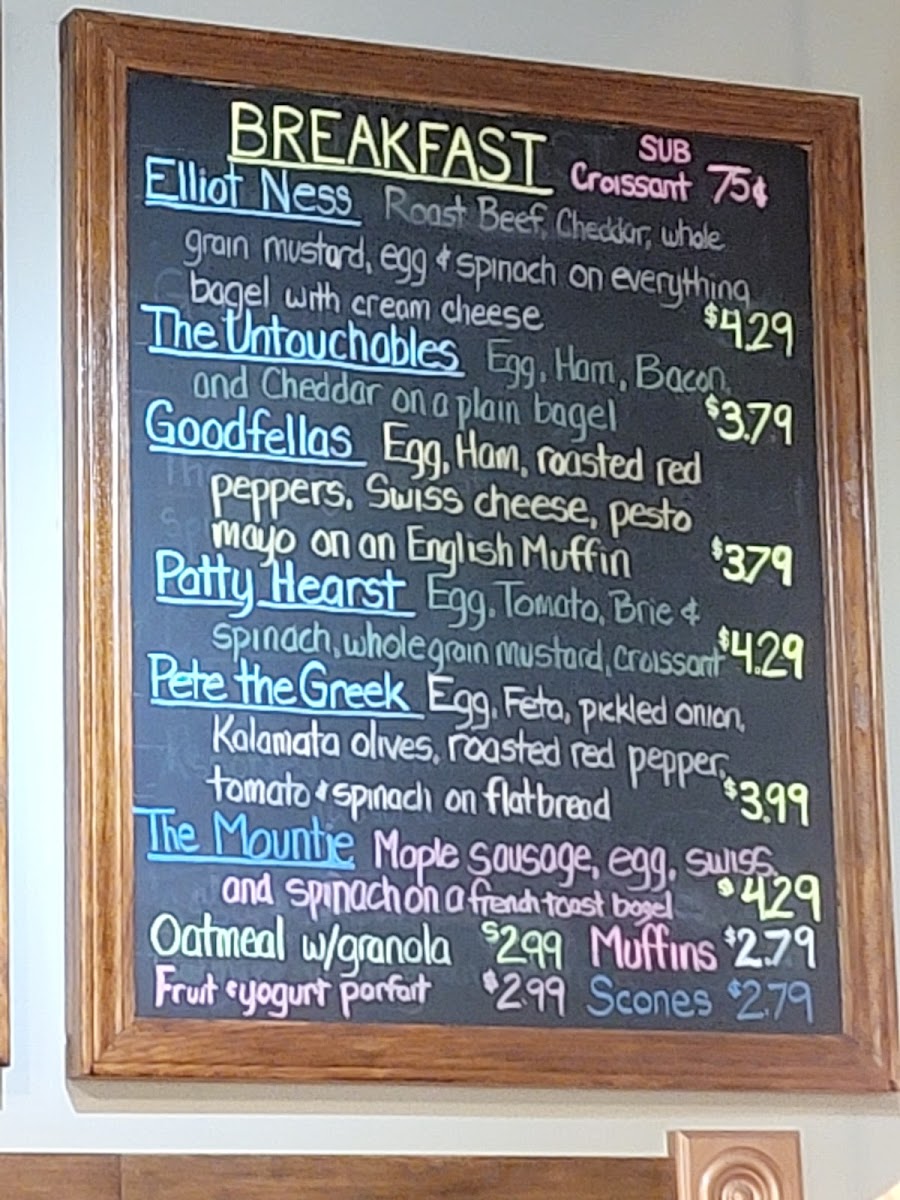 BREAKFAST SUB
Croissant 75¢
Elliot Ness Roast Beef, Cheddar, whole
grain mustard, egg & spinach on everything
bagel with cream cheese $4.29
The Untouchables Egg, Ham, Bacon,
and Cheddar on a plain bagel $3.79
Goodfellas Egg, Ham, roasted red
peppers, Swiss cheese, pesto
mayo on an English Muffin $3.79
Patty Hearst Egg, Tomato, Brie &
spinach, whole grain mustard, croissant $4.29
Pete the Greek Egg, Feta, pickled onion,
Kalamata olives, roasted red pepper,
tomato & spinach on flatbread $3.99
The Mountie Maple sausage, egg, swiss,
and spinach on a french toast bagel $4.29
Oatmeal w/granola $2.99 Muffins $2.79
Fruit & yogurt parfait $2.99 Scones $2.79